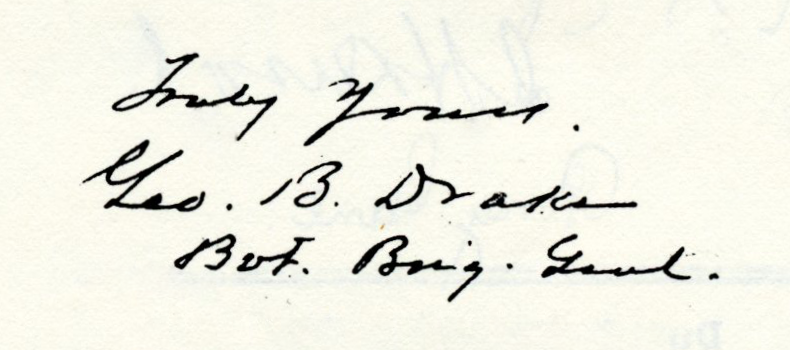 Truly Yours.
Geo. B. Drake
Bvt. Brig. Genl.